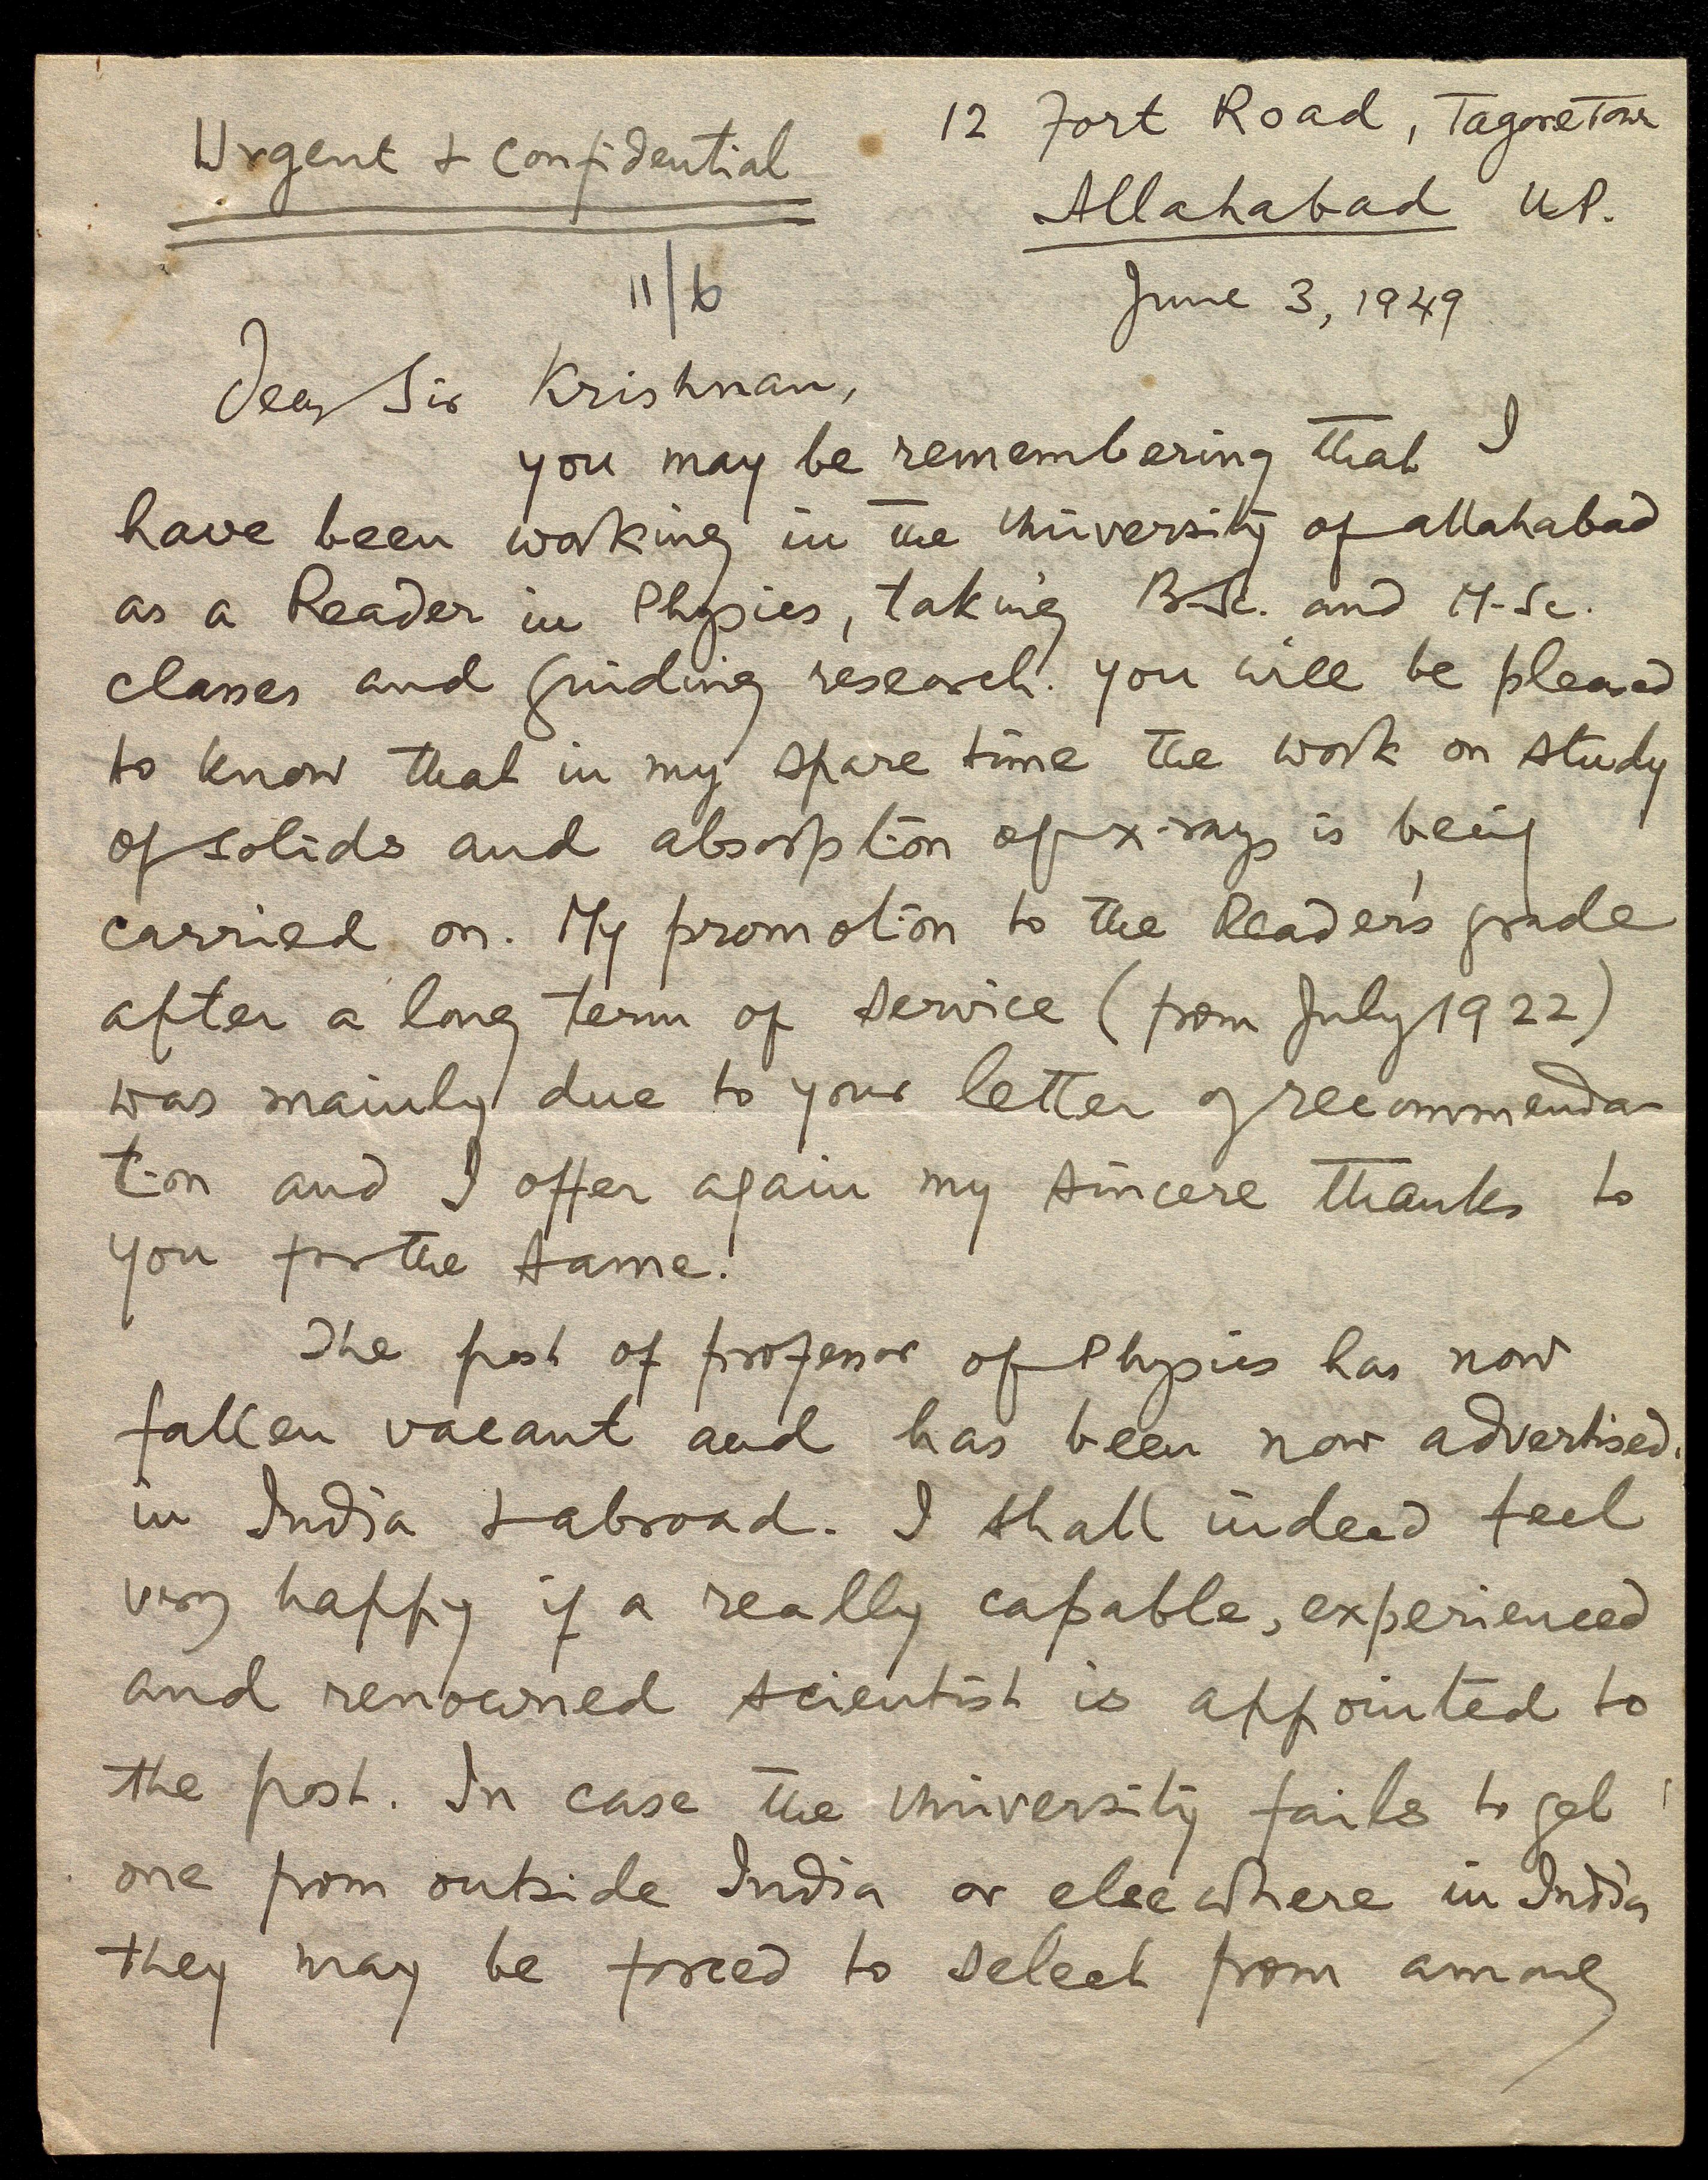 12 Fort Road, Tagore Town
Urgent & Confidential
Allahabad U.P.
11/6
June 3, 1949
Dear Sir Krishnan,
you may be remembering that I
have been working in the University of Allahabad
as a Reader in Physics, taking B.Sc. and M.Sc.
classes and guiding research. You will be pleased
to know that in my spare time the work on study
of solids and absorption of x-rays is being
carried on. My promotion to the Reader's grade
after a long term of service (from July 1922)
was mainly due to your letter of recommenda-
tion and I offer again my sincere thanks to
you for the same.
The post of professor of Physics has now
fallen vacant and has been now advertised.
in India & abroad. I shall indeed feel
very happy if a really capable, experienced
and renowned scientist is appointed to
the post. In case the University fails to get
one from outside India or elsewhere in India
they may be forced to select from among